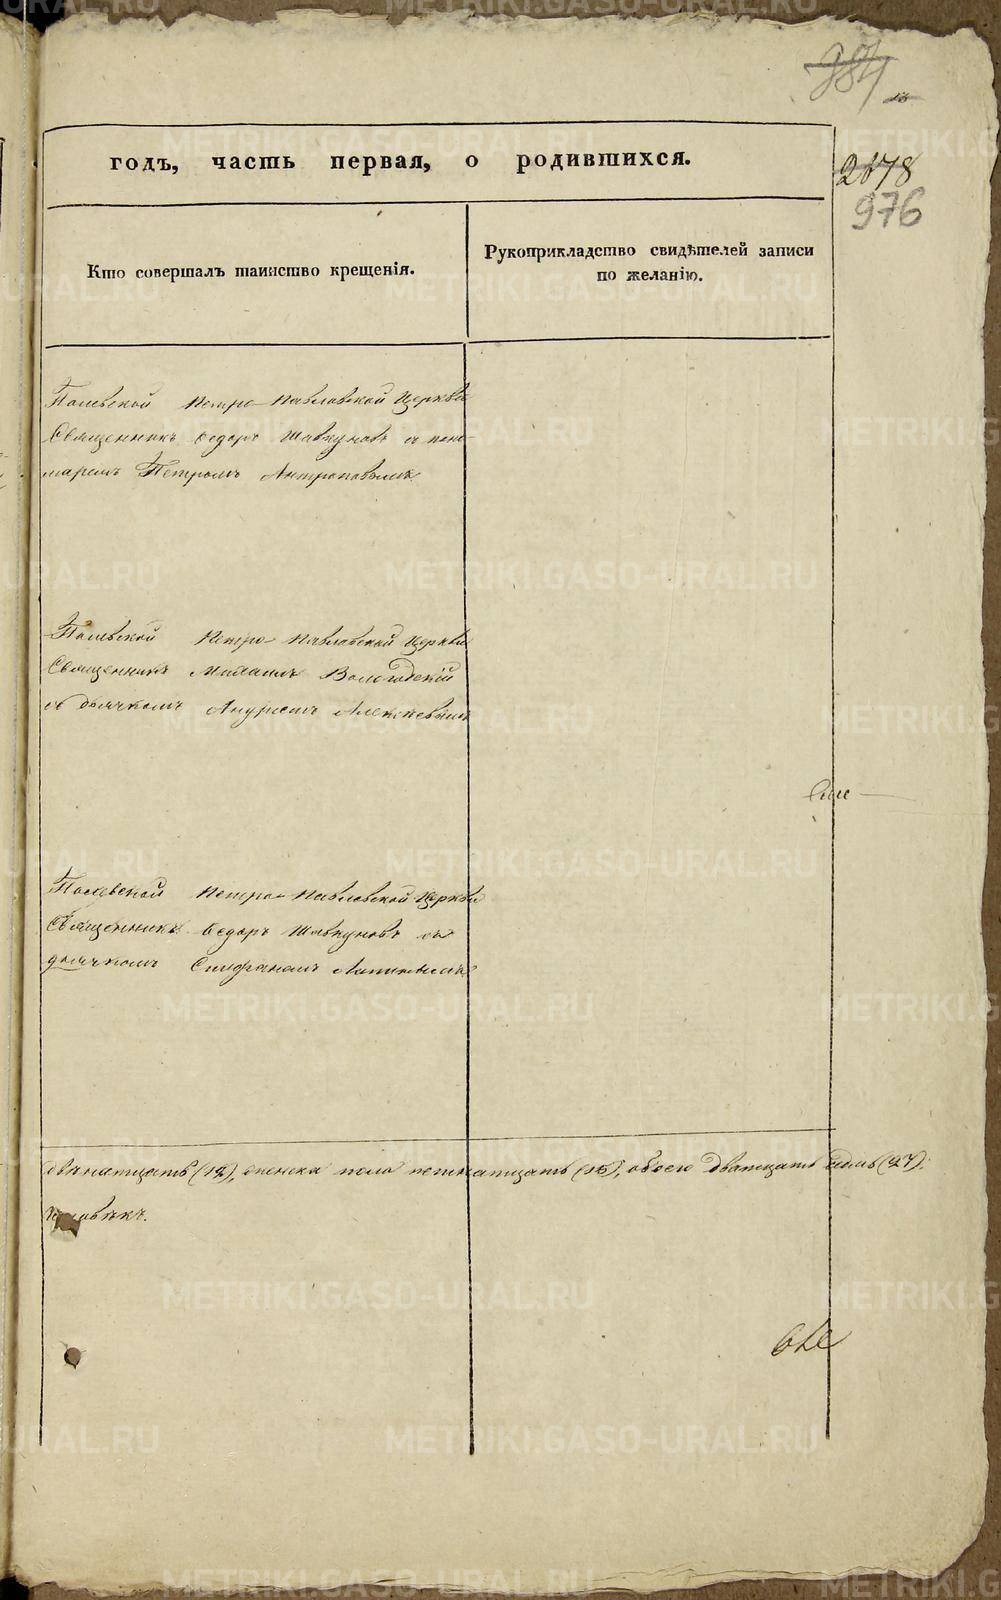 984
2678
976
годъ, часть первая, о родившихся.
Кто совершалъ таинство крещенія.
Рукоприкладство свидѣтелей записи
по желанію.
Полевской Петро-Павловской Церкви
Священникъ Федоръ Шавкуновъ съ поно-
маремъ Петромъ Антроповымъ
Полевской Петро-Павловской Церкви
Священникъ Михаилъ Вологодскій
съ дьячкомъ Алексѣевымъ
Полевской Петро-Павловской Церкви
Священникъ Федоръ Шавкуновъ съ
дьячкомъ Стефаномъ
двѣнатцать (12), женска пола петнатцать (15), обоего дватцать семь (27).
человѣкъ.
METRIKI.GASO-URAL.RU